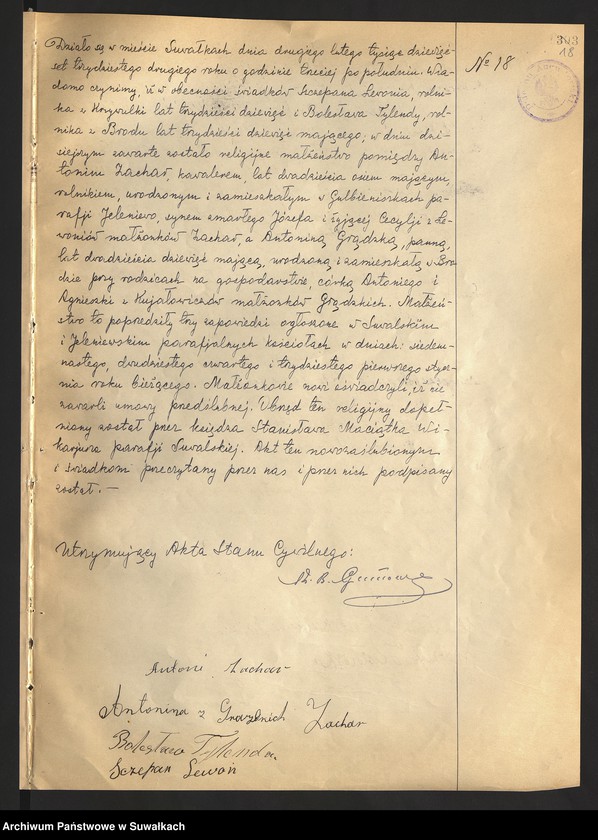 303
18
Nº 18
Działo się w mieście Suwałkach dnia drugiego lutego tysiąc dziewięć-
set trzydziestego drugiego roku o godzinie trzeciej po południu. Wia-
domo czynimy, iż w obecności świadków Szczepana Lewonia, rolni-
ka z Krzywulki lat trzydzieści dziewięć i Bolesława Tylendy, rol-
nika z Brodu lat trzydzieści dziewięć mającego; w dniu dzi-
siejszym zawarte zostało religijne małżeństwo pomiędzy An-
tonim Zachar, kawalerem, lat dwadzieścia osiem mającym,
rolnikiem, urodzonym i zamieszkałym w Gulbieniszkach pa-
rafji Jeleniewo, synem zmarłego Józefa i żyjącej Cecylji z Le-
woniów małżonków Zachar, a Antoniną Grądzką, panną,
lat dwadzieścia dziewięć mającą, urodzoną i zamieszkałą w Bro
dzie przy rodzicach na gospodarstwie, córką Antoniego i
Agnieszki z Kujałowiczów małżonków Grądzkich. Małżeń-
stwo to poprzedziły trzy zapowiedzi ogłoszone w Suwalskim
i Jeleniewskim parafjalnych kościołach w dniach: siedem-
nastego, dwudziestego czwartego i trzydziestego pierwszego stycz-
nia roku bieżącego. Małżonkowie nowi oświadczyli, iż nie
zawarli umowy przedślubnej. Obrzęd ten religijny dopeł-
niony został przez księdza Stanisława Maciątka Wi-
karjusza parafji Suwalskiej. Akt ten nowozaślubionym
i świadkom przeczytany przez nas i przez nich podpisany
został. —
Utrzymujący Akta Stanu Cywilnego:
X. B.
Antoni Zachar
Antonina z Grazkich Zachar
Bolesław Tylenda
Szczepan Lewoń
Archiwum Państwowe w Suwałkach